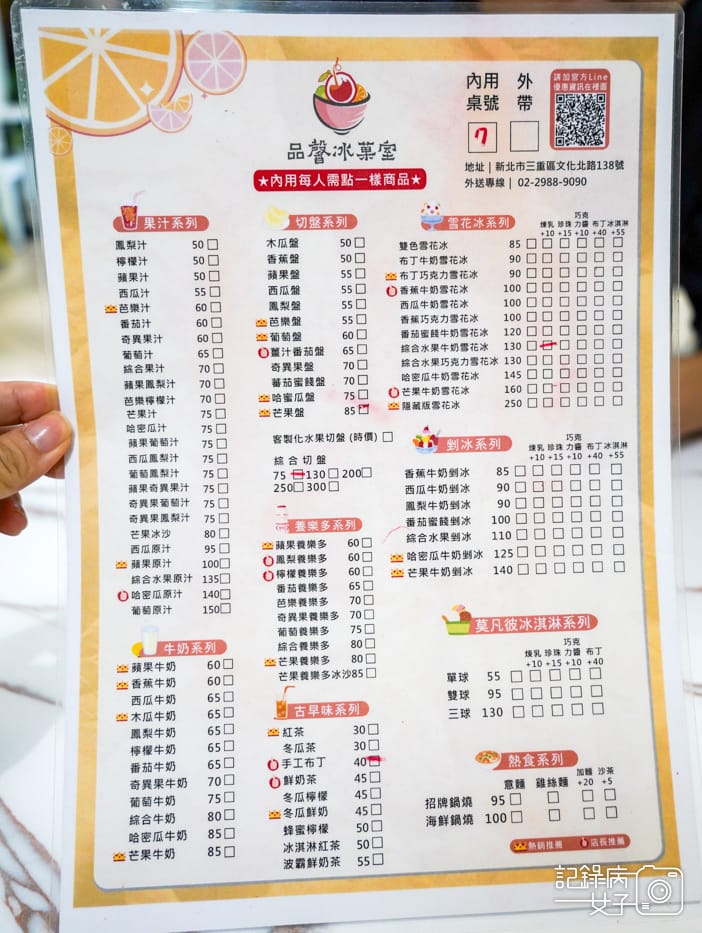 內用 外
桌號 帶
7
請加官方Line
優惠資訊在裡面
品馨冰菓室
★內用每人需點一樣商品★
地址｜新北市三重區文化北路138號
外送專線｜02-2988-9090
果汁系列
鳳梨汁 50
檸檬汁 50
蘋果汁 50
西瓜汁 55
芭樂汁 60
番茄汁 60
奇異果汁 60
葡萄汁 65
綜合果汁 70
蘋果鳳梨汁 70
芭樂檸檬汁 70
芒果汁 75
哈密瓜汁 75
蘋果葡萄汁 75
西瓜鳳梨汁 75
葡萄鳳梨汁 75
蘋果奇異果汁 75
奇異果葡萄汁 75
奇異果鳳梨汁 75
芒果冰沙 80
西瓜原汁 95
蘋果原汁 100
綜合水果原汁 135
哈密瓜原汁 140
葡萄原汁 150
牛奶系列
蘋果牛奶 60
香蕉牛奶 60
西瓜牛奶 65
木瓜牛奶 65
鳳梨牛奶 65
檸檬牛奶 65
番茄牛奶 65
奇異果牛奶 70
葡萄牛奶 75
綜合牛奶 80
哈密瓜牛奶 85
芒果牛奶 85
切盤系列
木瓜盤 50
香蕉盤 50
蘋果盤 55
西瓜盤 55
鳳梨盤 55
芭樂盤 55
葡萄盤 60
薑汁番茄盤 65
奇異果盤 70
蕃茄蜜餞盤 70
哈蜜瓜盤 75
芒果盤 85
客製化水果切盤 (時價)
綜合切盤
75 130 200
250 300
養樂多系列
蘋果養樂多 60
鳳梨養樂多 60
檸檬養樂多 60
番茄養樂多 65
芭樂養樂多 70
奇異果養樂多 70
葡萄養樂多 75
綜合養樂多 80
芒果養樂多 80
芒果養樂多冰沙85
古早味系列
紅茶 30
冬瓜茶 30
手工布丁 40
鮮奶茶 45
冬瓜檸檬 45
冬瓜鮮奶 45
蜂蜜檸檬 50
冰淇淋紅茶 50
波霸鮮奶茶 55
雪花冰系列
巧克
煉乳 珍珠 力醬 布丁 冰淇淋
+10 +15 +10 +40 +55
雙色雪花冰 85
布丁牛奶雪花冰 90
布丁巧克力雪花冰 90
香蕉牛奶雪花冰 100
西瓜牛奶雪花冰 100
香蕉巧克力雪花冰 100
番茄蜜餞牛奶雪花冰 120
綜合水果牛奶雪花冰 130
綜合水果巧克力雪花冰 130
哈密瓜牛奶雪花冰 145
芒果牛奶雪花冰 160
隱藏版雪花冰 250
剉冰系列
巧克
煉乳 珍珠 力醬 布丁 冰淇淋
+10 +15 +10 +40 +55
香蕉牛奶剉冰 85
西瓜牛奶剉冰 90
鳳梨牛奶剉冰 90
番茄蜜餞剉冰 100
綜合水果剉冰 110
哈密瓜牛奶剉冰 125
芒果牛奶剉冰 140
莫凡彼冰淇淋系列
巧克
煉乳 珍珠 力醬 布丁
+10 +15 +10 +40
單球 55
雙球 95
三球 130
熱食系列
加麵 沙茶
意麵 雞絲麵 +20 +5
招牌鍋燒 95
海鮮鍋燒 100
熱銷推薦 店長推薦
記錄病
女子